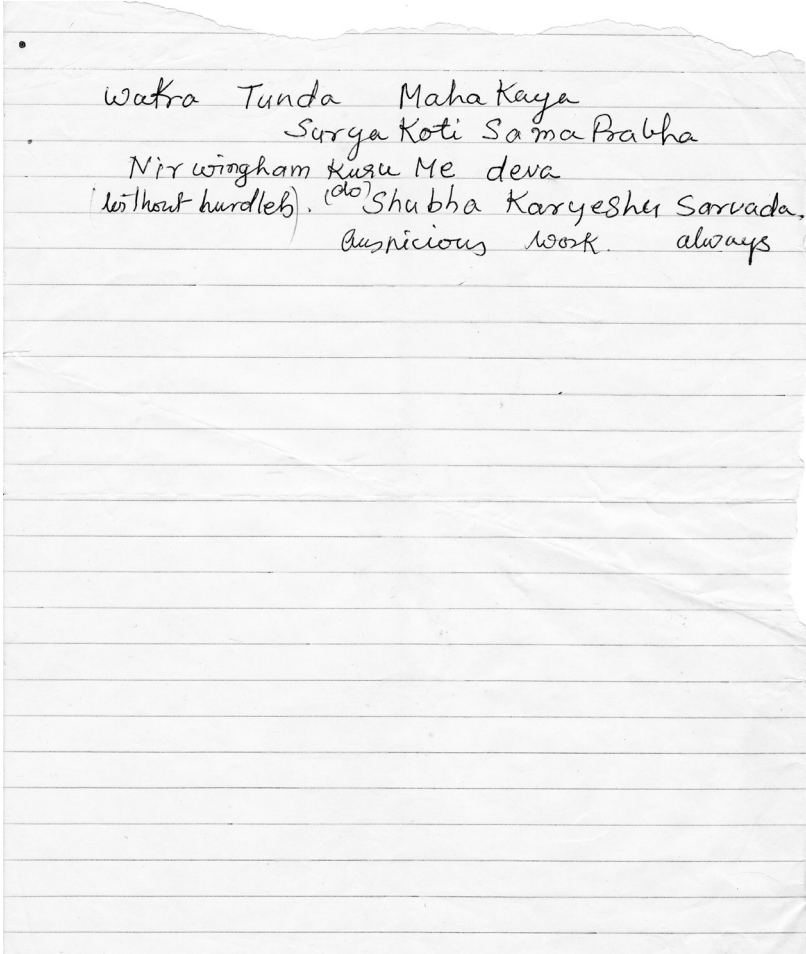 Wakra Tunda Maha Kaya
Surya Koti Sama Prabha
Nir wingham Kuru Me deva
(without hurdles). (do) Shubha Karyeshu Sarvada.
Auspicious work. always